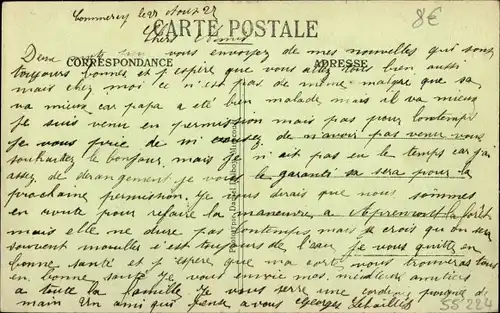 Commercy le 27 Aout 22
8€
CARTE POSTALE
Chers Amis
Deux mots pour vous envoyez de mes nouvelles qui sont
CORRESPONDANCE
ADRESSE
toujours bonnes et j espère que vous allez tout bien aussi
mais chez moi ce n'est pas de même malgré que sa
va mieux car papa a été bien malade mais il va mieux
je suis venu en permission mais pas pour longtemps
je vous prie de m excusez de n'avoir pas venu vous
souhaitez le bonjour, mais je n ait pas eu le temps car j'ai
assez de derangement je vous le garanti sa sera pour la
prochaine permission. Je vous dirais que nous sommes
en route pour refaire la manœuvre a Apremont la forêt
mais elle ne dure pas longtemps mais je crois qu on sera
souvent mouillés c est toujours de l'eau, je vous quitte en
bonne santé et j espère que ma carte vous trouveras tous
en bonne santé Je vous envoie mes meilleurs amitiés
a toute la famille Je vous serre une cordiale poignée de
main Un ami qui pense a vous Georges
55 224